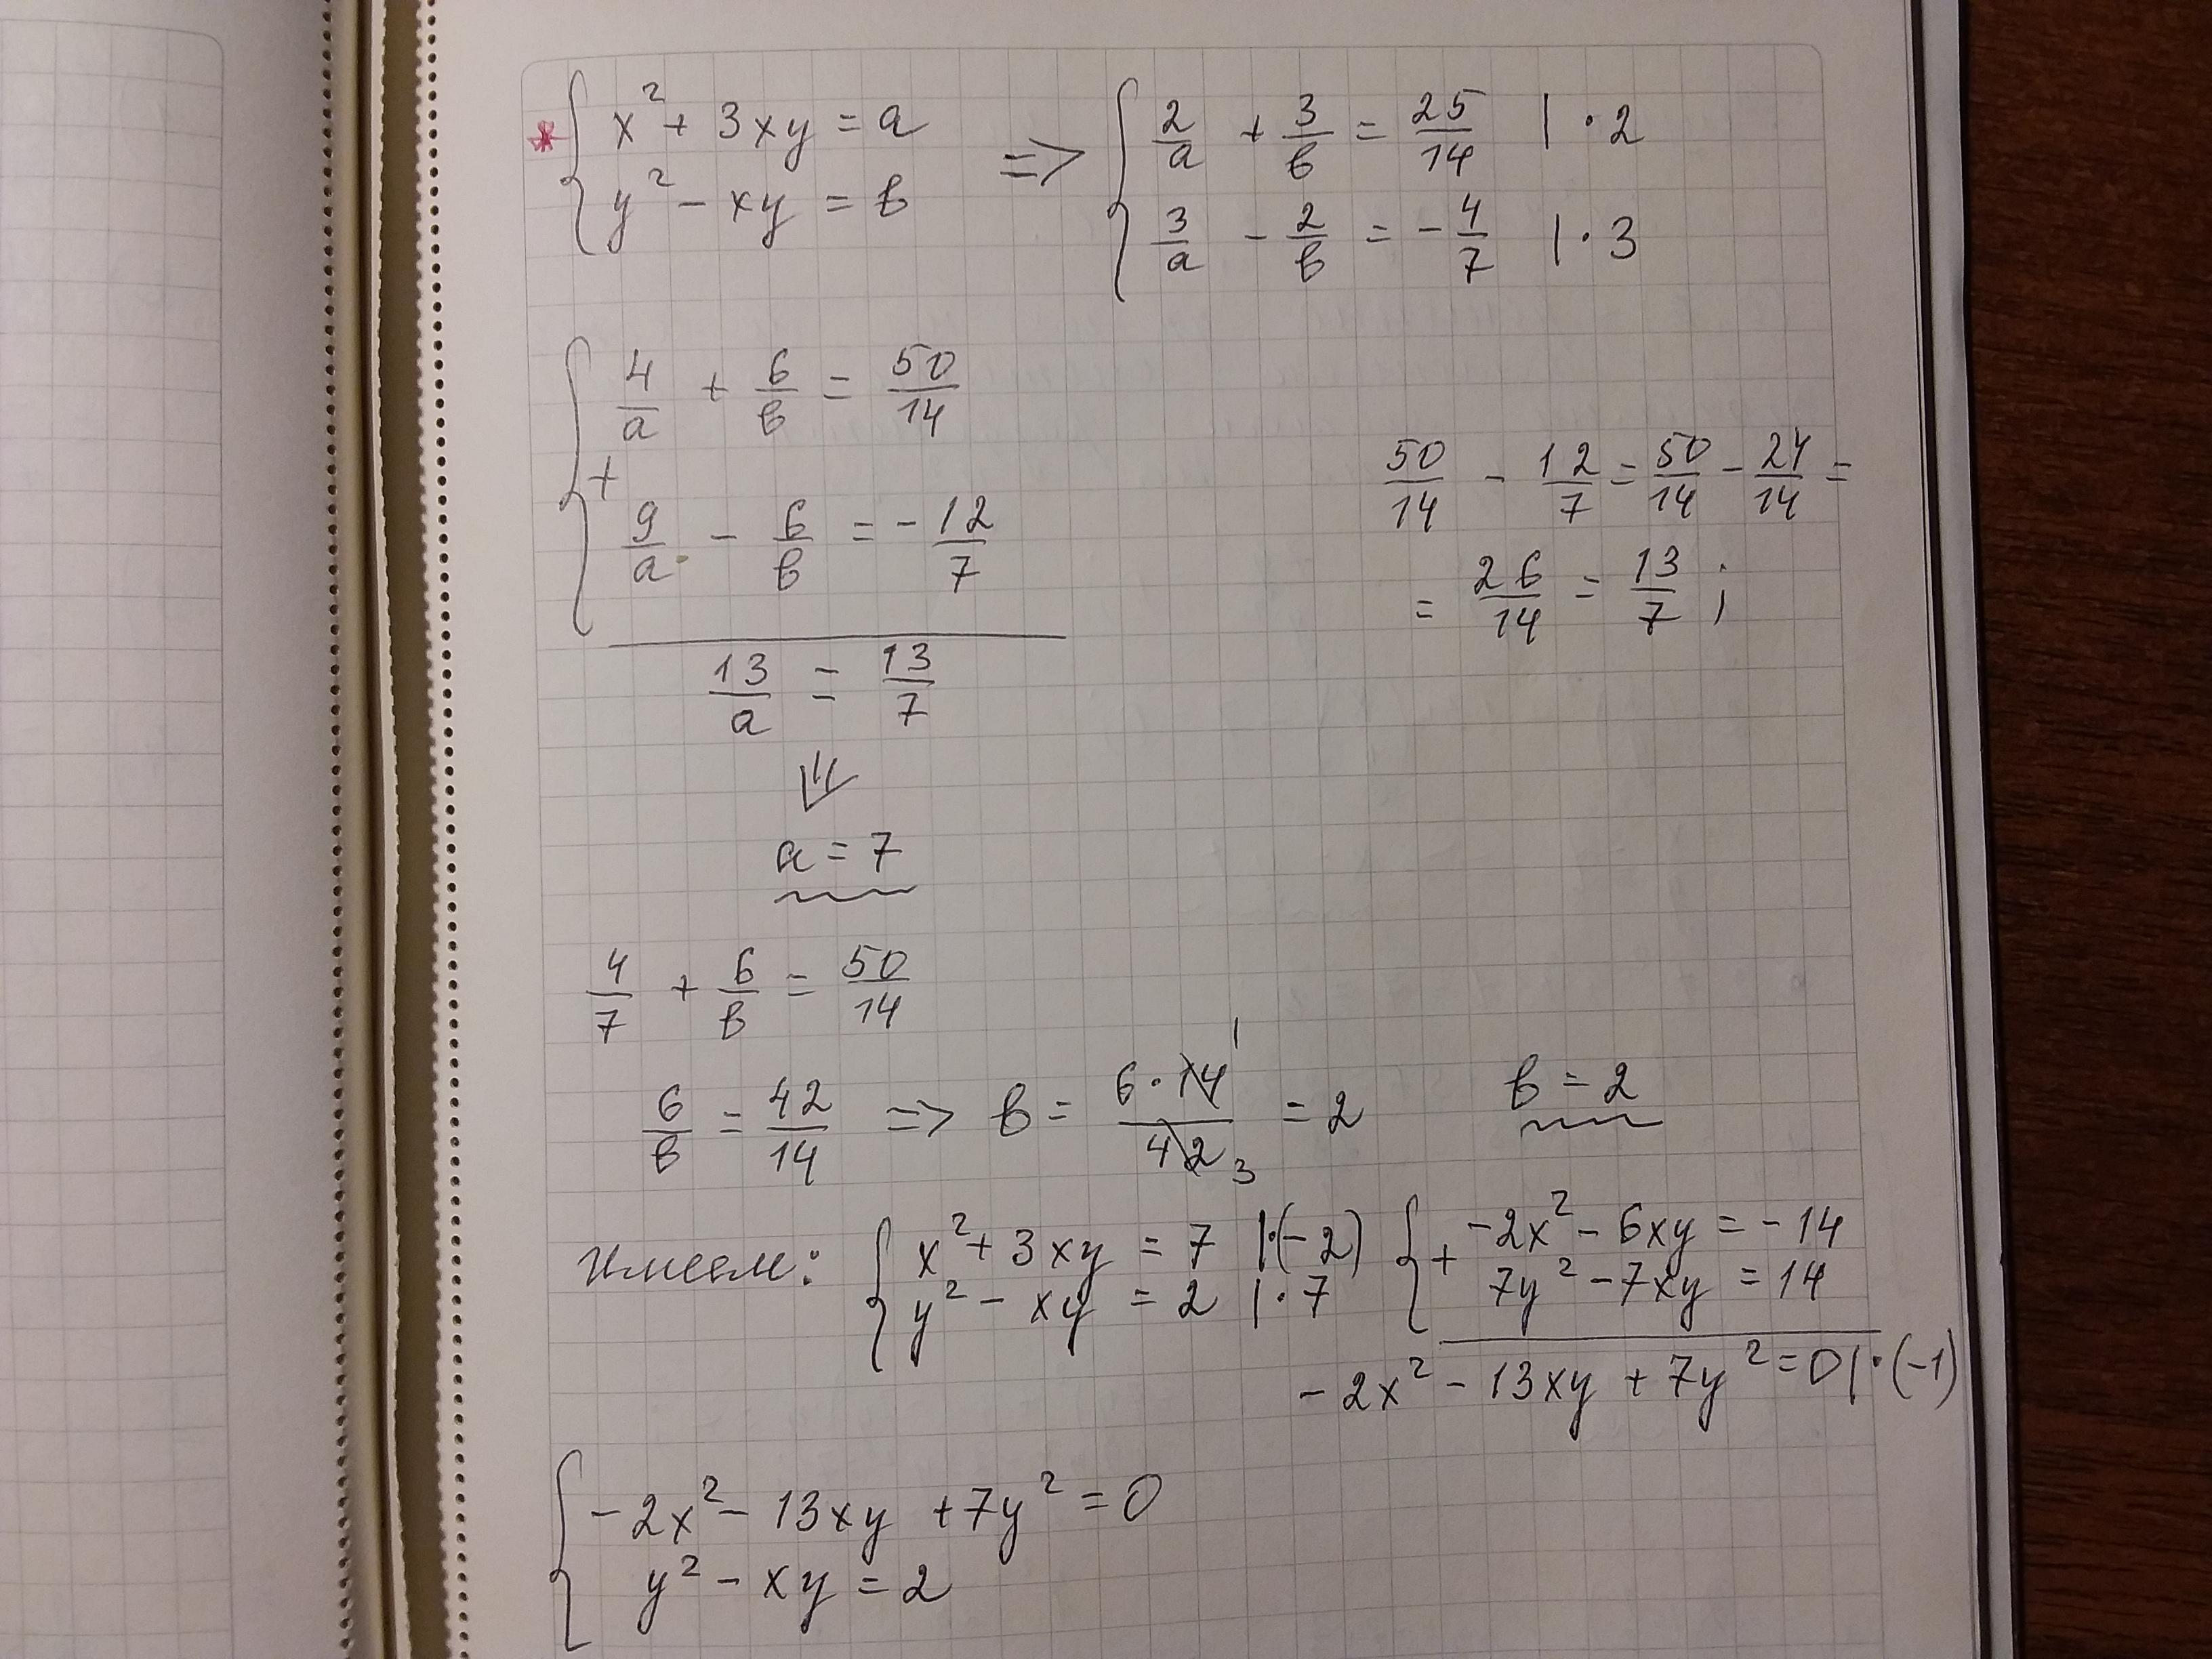 * { x² + 3xy = a => { 2/a + 3/в = 25/14 | · 2
y² - xy = в 3/a - 2/в = - 4/7 | · 3
{ 4/a + 6/в = 50/14
+
9/a - 6/в = - 12/7
50/14 - 12/7 = 50/14 - 24/14 =
= 26/14 = 13/7 ;
13/a = 13/7
⇓
a = 7
4/7 + 6/в = 50/14
6/в = 42/14 => в = 6 · 14 1 / 42 3 = 2 в = 2
Имеем: { x² + 3xy = 7 | · (-2) { + -2x² - 6xy = -14
y² - xy = 2 | · 7 7y² - 7xy = 14
- 2x² - 13xy + 7y² = 0 | · (-1)
{ - 2x² - 13xy + 7y² = 0
y² - xy = 2